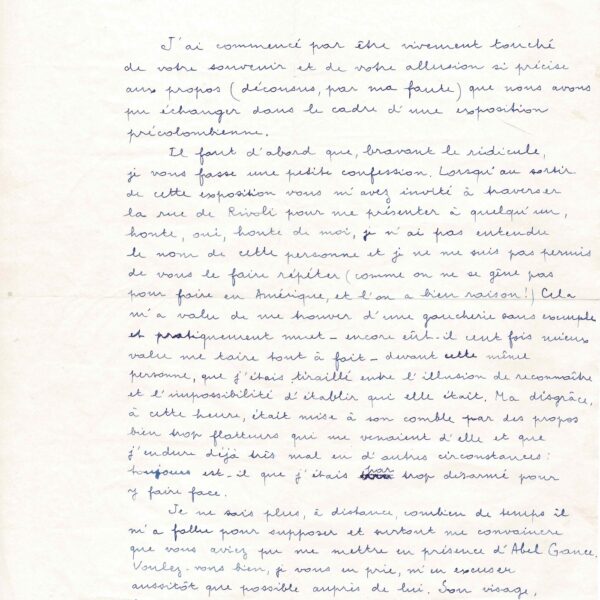 J'ai commencé par être vivement touché
de votre souvenir et de votre allusion si précise
aux propos (décousus, par ma faute) que nous avons
pu échanger dans le cadre d'une exposition
précolombienne.
Il faut d'abord que, bravant le ridicule,
je vous fasse une petite confession. Lorsqu'au sortir
de cette exposition vous m'avez invité à traverser
la rue de Rivoli pour me présenter à quelqu'un,
honte, oui, honte de moi, je n'ai pas entendu
le nom de cette personne et je ne me suis pas permis
de vous le faire répéter (comme on ne se gêne pas
pour faire en Amérique, et l'on a bien raison!) Cela
m'a valu de me trouver d'une gaucherie sans exemple
et pratiquement muet - encore eût-il cent fois mieux
valu me taire tout à fait - devant cette même
personne, que j'étais tiraillé entre l'illusion de reconnaître
et l'impossibilité d'établir qui elle était. Ma disgrâce,
à cette heure, était mise à son comble par des propos
bien trop flatteurs qui me venaient d'elle et que
j'endure déjà très mal en d'autres circonstances:
toujours est-il que j'étais par trop désarmé pour
y faire face.
Je ne sais plus, à distance, combien de temps il
m'a fallu pour supposer et surtout me convaincre
que vous aviez pu me mettre en présence d'Abel Gance.
Voulez-vous bien, je vous en prie, m'en excuser
aussitôt que possible auprès de lui. Son visage,